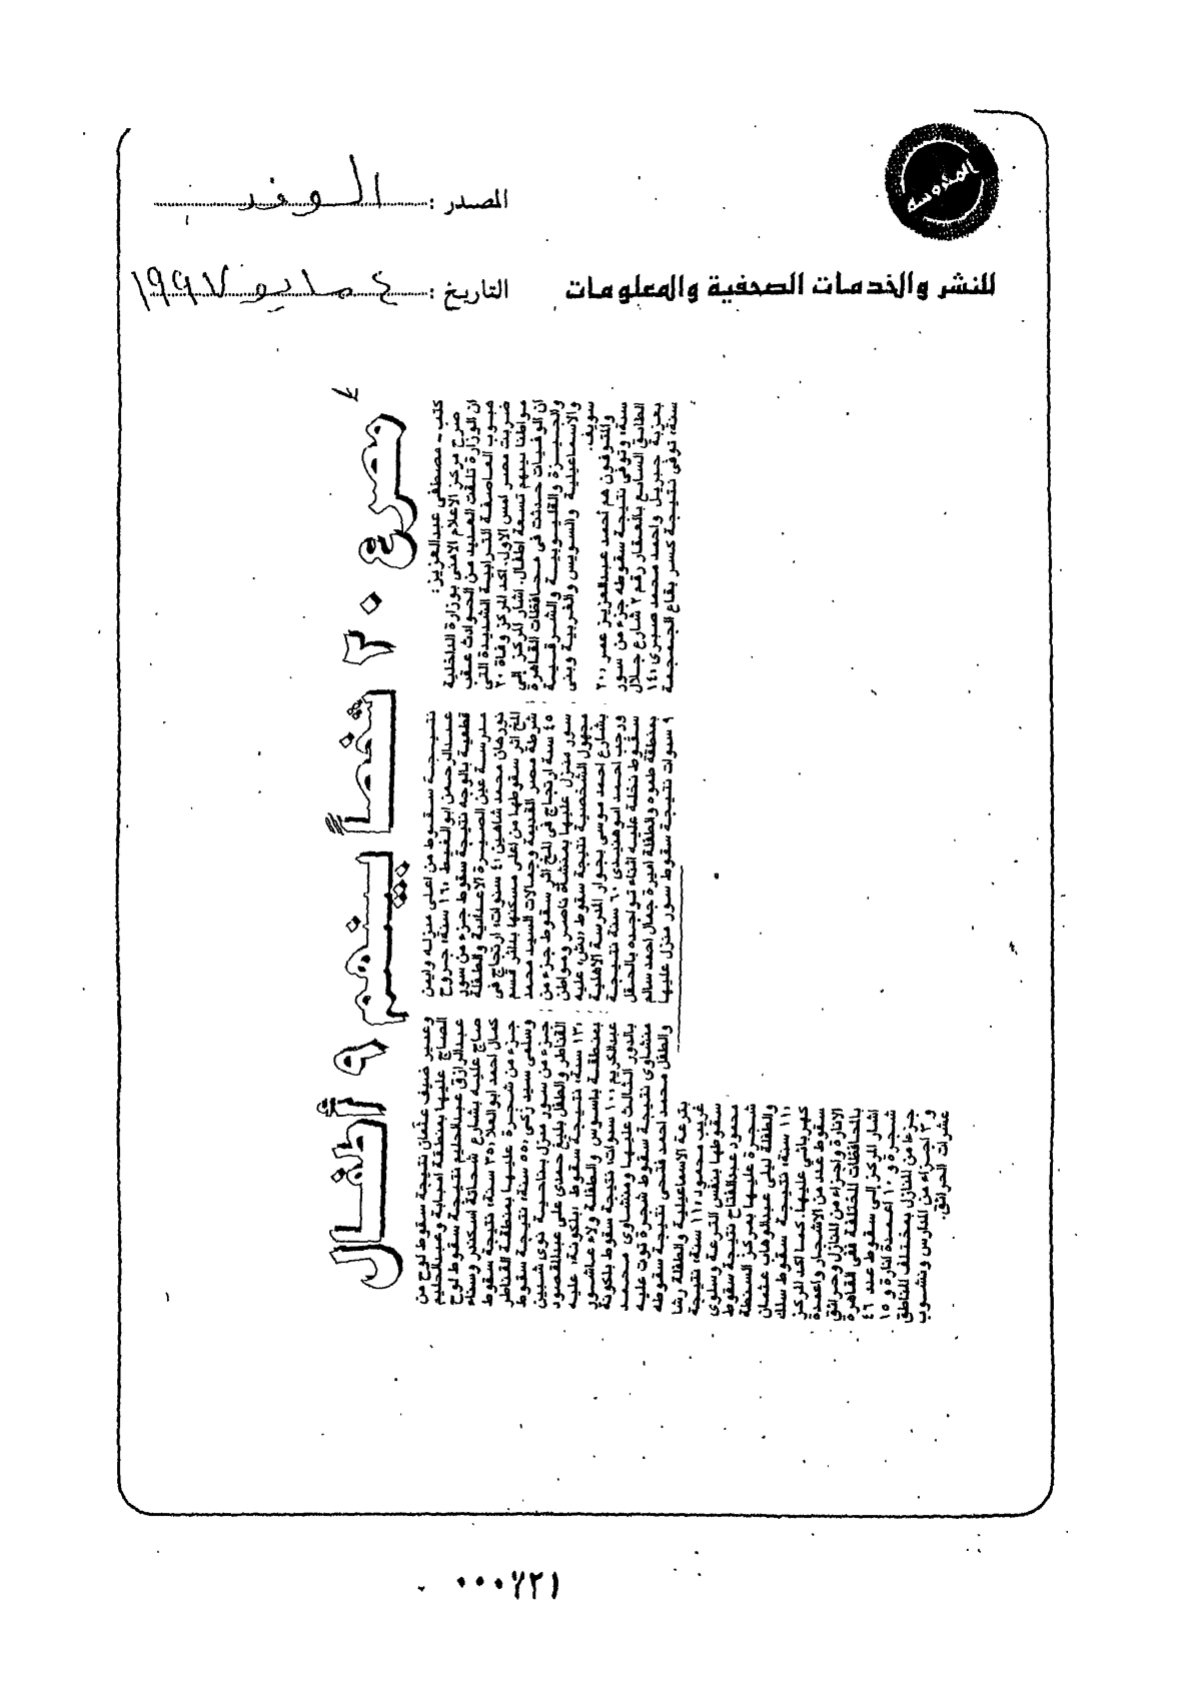 المحروسة
المصدر : الوفد
للنشر والخدمات الصحفية والمعلومات
التاريخ : ٤ مايو ١٩٩٧
مصرع ٢٠ شخصاً بينهم ٩ أطفال
كتب ـ مصطفى عبدالعزيز:
صرح مركز الاعلام الامنى بوزارة الداخلية
ان الوزارة تلقت العديد من الحوادث عقب
هبوب العاصفة الترابية الشديدة التى
ضربت مصر امس الاول. اكد المركز وفاة ٢٠
مواطنا بينهم تسعة اطفال. اشار المركز إلى
ان الوفيات حدثت فى محافظات القاهرة
والجيزة والقليوبية والشرقية
والاسماعيلية والسويس والغربية وبنى
سويف.
والمتوفون هم أحمد عبدالعزيز عمر ٢٠
سنة، وتوفى نتيجة سقوطه جزء من سور
الطابق السابع بالعقار رقم ٢ شارع جلال
بعزبة جبريل واحمد محمد صبرى ١٤
سنة، توفى نتيجة كسر بقاع الجمجمة
نتيجة سقوط من اعلى منزله وايمن
عبدالرحمن ابوالغيط ١٦ سنة، جروح
قطعية بالوجه نتيجة سقوط جزء من سور
مدرسة عين الصيرة الاعدادية والطفلة
نورهان محمد شاهين ٤ سنوات، ارتجاج فى
المخ اثر سقوطها من اعلى مسكنها بدائر قسم
شرطة مصر القديمة وجمالات السيد محمد
٤٥ سنة ارتجاج فى المخ اثر سقوط جزء من
سور منزل عليها بمنشأة ناصر ومواطن
مجهول الشخصية نتيجة سقوط عليه
بشارع احمد موسى بجوار المدرسة الاهلية
ورجب احمد ابوهنيدى ٦٠ سنة نتيجة
سقوط نخلة عليه اثناء تواجده بالحقل
بمنطقة طموه والطفلة اميرة جمال احمد سالم
٩ سنوات نتيجة سقوط سور منزل عليها
وعبير ضيف عثمان نتيجة سقوط لوح من
الصاج عليها بمنطقة امبابة وعبدالحليم
عبدالرازق عبدالحليم نتيجة سقوط لوح
صاج عليه بشارع شحاتة اسكندر وسناء
كمال احمد ابوالعلا ٣٥ سنة، نتيجة سقوط
جزء من شجرة عليها بمنطقة القناطر
وسلمى سيد زكى ٥٥ سنة، نتيجة سقوط
جزء من سور منزل بناحية نوى شبين
القناطر والطفل بليغ حمدى على عبدالمقصود
١٣ سنة، نتيجة سقوط بلكونة، عليه
بمنطقة باسوس والطفلة ولاء عاشور
عبدالكريم ١٠ سنوات، نتيجة سقوط بلكونة
بالدور الثالث عليها ومنشاوى محمد
منشاوى نتيجة سقوط شجرة توت عليه
والطفل محمد احمد فتحى نتيجة سقوطه
بترعة الاسماعيلية والطفلة رشا
غريب محمود ١١ سنة، نتيجة
سقوطها بنفس الترعة وسلوى
محمود عبدالفتاح نتيجة سقوط
شجرة عليها بمركز السنطة
والطفلة ليلى عبدالوهاب عثمان
١١ سنة، نتيجة سقوط سلك
كهربائي عليها. كما اكد المركز
سقوط عدد من الاشجار واعمدة
الانارة واجزاء من المنازل وحرائق
بالمحافظات المختلفة ففى القاهرة
اشار المركز إلى سقوط عدد ٤٦
شجرة و ١٠ اعمدة انارة و ١٥
جزءا من المنازل بمختلف المناطق
و ٣ اجزاء من المدارس ونشوب
عشرات الحرائق.
٠٠٠٦٢١